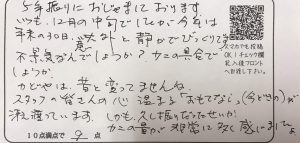 5年振りにおじゃまして おります
いつも、12月の中旬でしたが今年は
年末の30日、意外なと 静かでびっくりです
不景気なんでしょうか? カニの具合で
しょうか。
かどやは、昔と変ってませんね
スタッフの皆さんの心温まる「おもてなし」(今どきの)が
溢れ ています。 しかも、久し振りだったせいか
カニの量が非常に多く感じました
スマホでも投稿
OK!チェック欄
記入後フロント
へお渡し下さい。
10点満点で 9 点